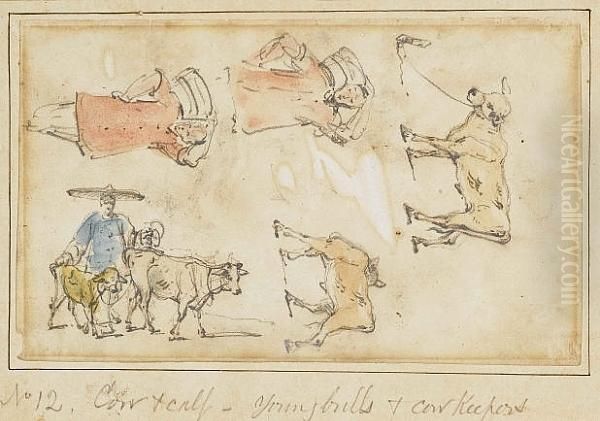 No 12. Cow + calf - Young bulls + cow Keepers
NiceArtGallery.com